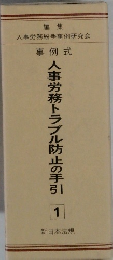 編集
人事労務労働事例研究会
事例式
人事労務トラブル防止の手引
1
日本法規